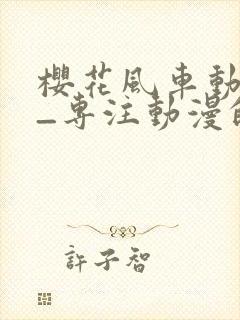 櫻花風車動
–專注動漫的
許子智